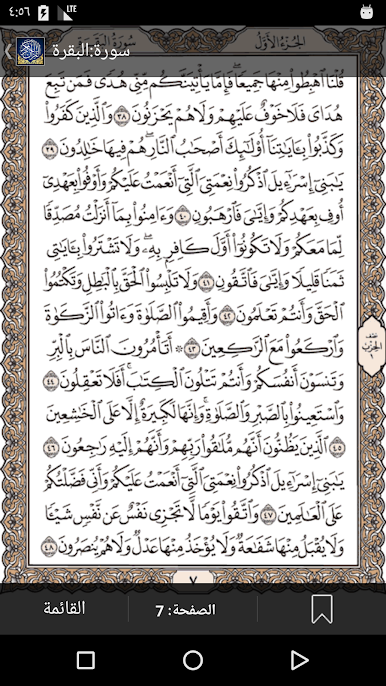 ٤:٥٦ LTE
سورة:البقرة
سُورَةُ البَقَرَةِ الجُزءُ الأَوَّلُ
قُلْنَا ٱهْبِطُوا۟ مِنْهَا جَمِيعًا ۖ فَإِمَّا يَأْتِيَنَّكُم مِّنِّى هُدًى فَمَن تَبِعَ
هُدَاىَ فَلَا خَوْفٌ عَلَيْهِمْ وَلَا هُمْ يَحْزَنُونَ ٣٨ وَٱلَّذِينَ كَفَرُوا۟
وَكَذَّبُوا۟ بِـَٔايَـٰتِنَآ أُو۟لَـٰٓئِكَ أَصْحَـٰبُ ٱلنَّارِ ۖ هُمْ فِيهَا خَـٰلِدُونَ
٣٩ يَـٰبَنِىٓ إِسْرَٰٓءِيلَ ٱذْكُرُوا۟ نِعْمَتِىَ ٱلَّتِىٓ أَنْعَمْتُ عَلَيْكُمْ وَأَوْفُوا۟ بِعَهْدِىٓ
أُوفِ بِعَهْدِكُمْ وَإِيَّـٰىَ فَٱرْهَبُونِ ٤٠ وَءَامِنُوا۟ بِمَآ أَنزَلْتُ مُصَدِّقًا
لِّمَا مَعَكُمْ وَلَا تَكُونُوٓا۟ أَوَّلَ كَافِرٍۭ بِهِۦ ۖ وَلَا تَشْتَرُوا۟ بِـَٔايَـٰتِى
ثَمَنًا قَلِيلًا وَإِيَّـٰىَ فَٱتَّقُونِ ٤١ وَلَا تَلْبِسُوا۟ ٱلْحَقَّ بِٱلْبَـٰطِلِ وَتَكْتُمُوا۟
ٱلْحَقَّ وَأَنتُمْ تَعْلَمُونَ ٤٢ وَأَقِيمُوا۟ ٱلصَّلَوٰةَ وَءَاتُوا۟ ٱلزَّكَوٰةَ
وَٱرْكَعُوا۟ مَعَ ٱلرَّٰكِعِينَ ٤٣ ۞ أَتَأْمُرُونَ ٱلنَّاسَ بِٱلْبِرِّ
وَتَنسَوْنَ أَنفُسَكُمْ وَأَنتُمْ تَتْلُونَ ٱلْكِتَـٰبَ ۚ أَفَلَا تَعْقِلُونَ ٤٤
وَٱسْتَعِينُوا۟ بِٱلصَّبْرِ وَٱلصَّلَوٰةِ ۚ وَإِنَّهَا لَكَبِيرَةٌ إِلَّا عَلَى ٱلْخَـٰشِعِينَ
٤٥ ٱلَّذِينَ يَظُنُّونَ أَنَّهُم مُّلَـٰقُوا۟ رَبِّهِمْ وَأَنَّهُمْ إِلَيْهِ رَٰجِعُونَ ٤٦
يَـٰبَنِىٓ إِسْرَٰٓءِيلَ ٱذْكُرُوا۟ نِعْمَتِىَ ٱلَّتِىٓ أَنْعَمْتُ عَلَيْكُمْ وَأَنِّى فَضَّلْتُكُمْ
عَلَى ٱلْعَـٰلَمِينَ ٤٧ وَٱتَّقُوا۟ يَوْمًا لَّا تَجْزِى نَفْسٌ عَن نَّفْسٍ شَيْـًٔا
وَلَا يُقْبَلُ مِنْهَا شَفَـٰعَةٌ وَلَا يُؤْخَذُ مِنْهَا عَدْلٌ وَلَا هُمْ يُنصَرُونَ ٤٨
نصف
الحزب
٧
القائمة الصفحة: 7